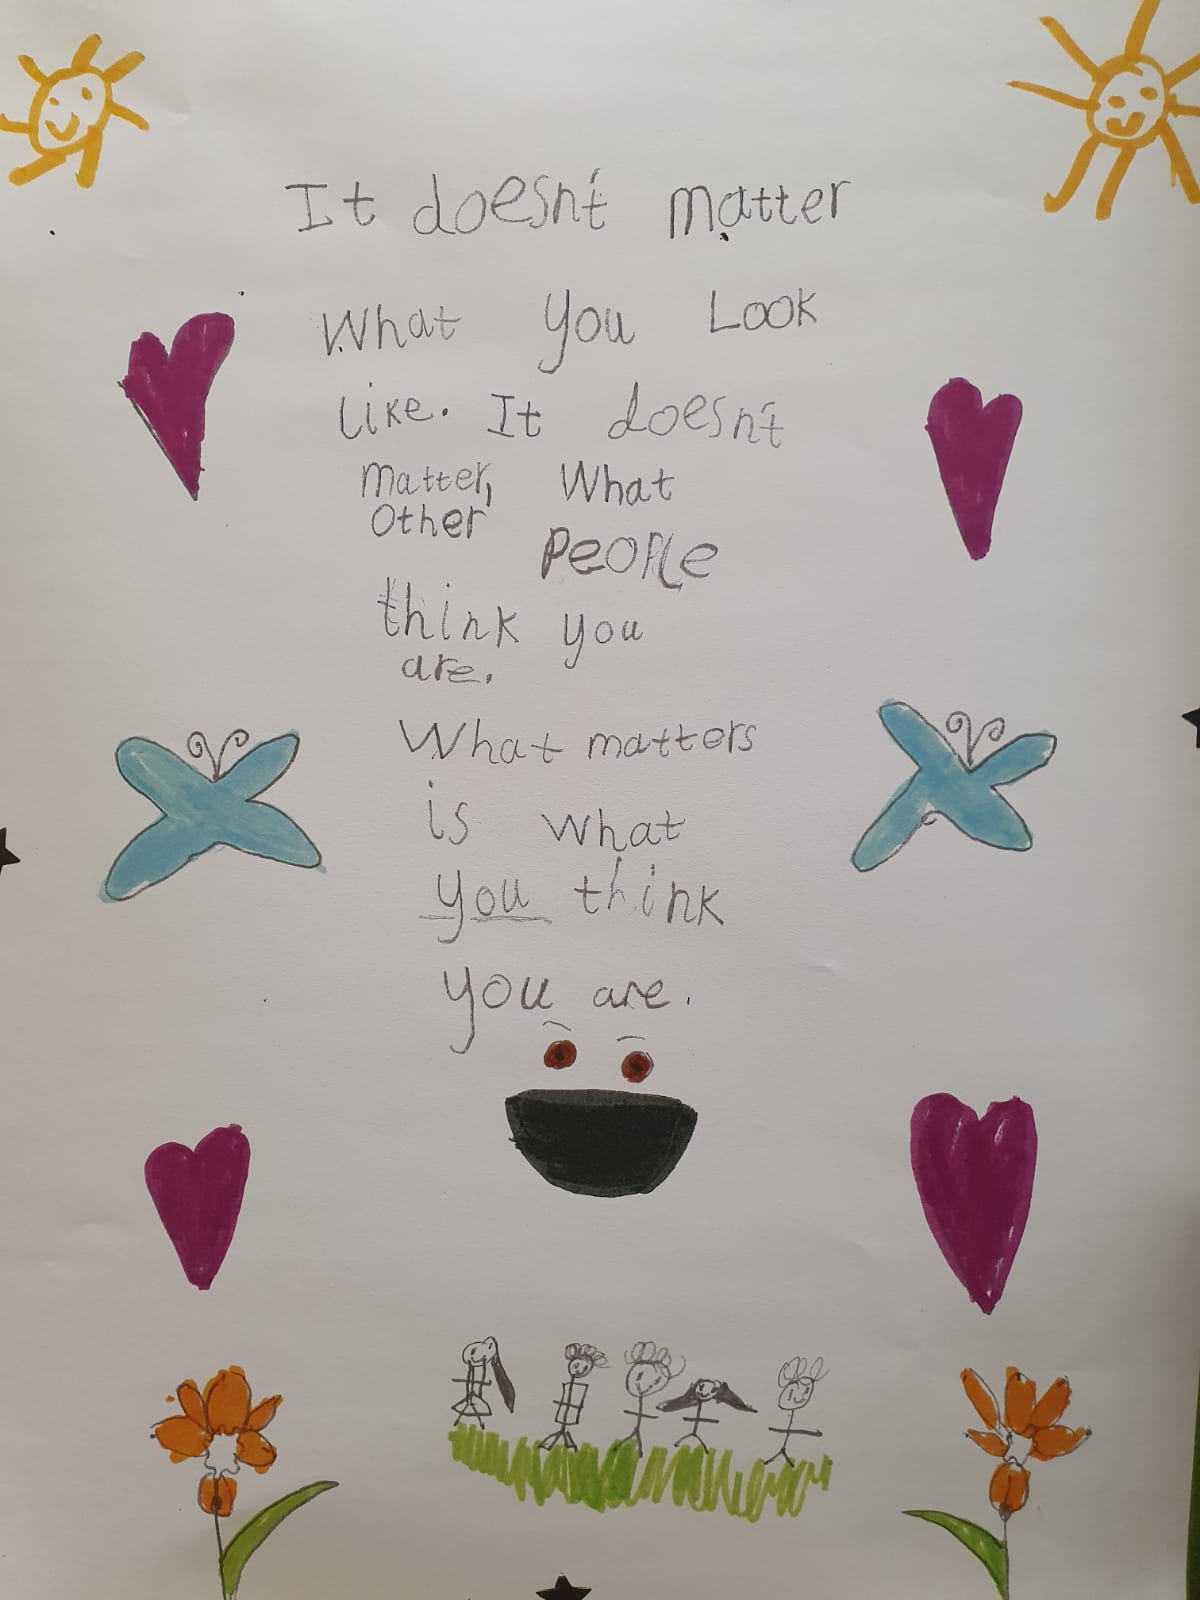 It doesn't matter
What you Look
Like. It doesn't
matter, What
Other People
think you
are.
What matters
is what
you think
you are.